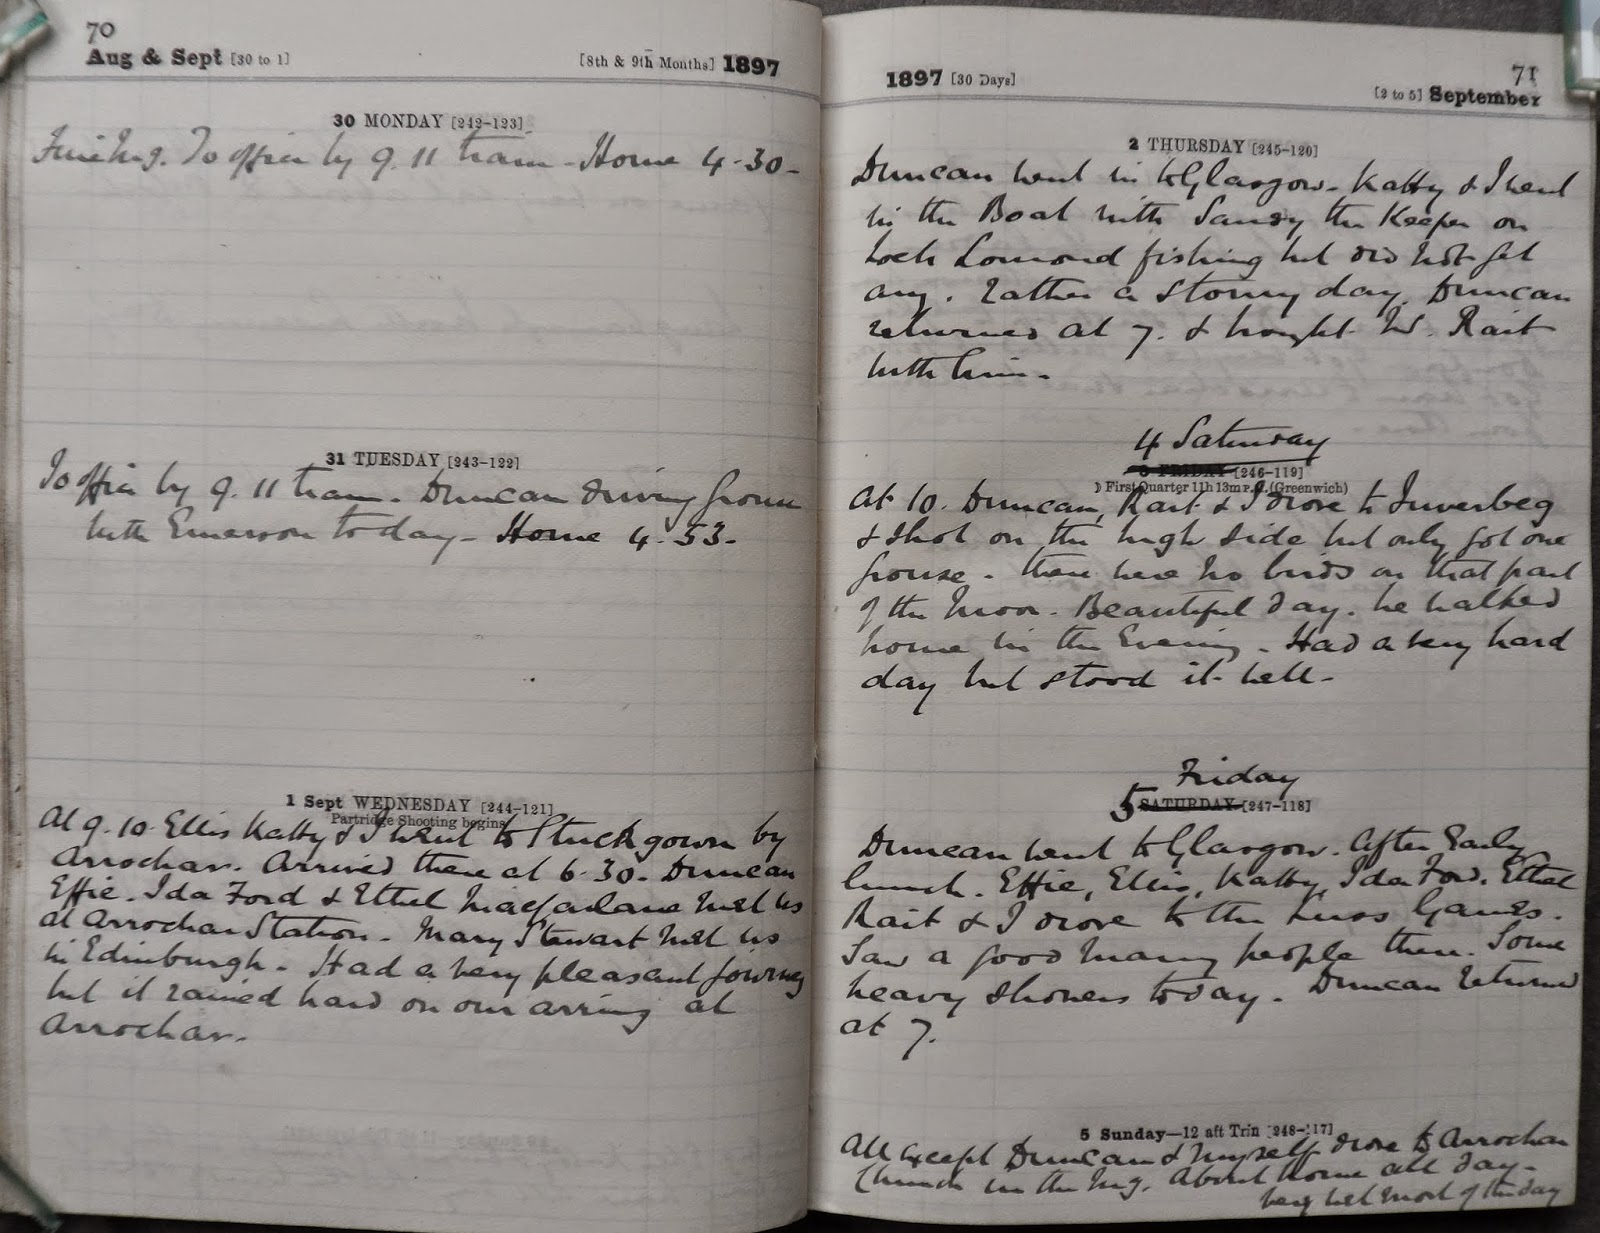 70
Aug & Sept [30 to 1] [8th & 9th Months] 1897
30 MONDAY [242-123]
Fine Mg. To office by 9.11 tram - Home 4-30-
31 TUESDAY [243-122]
To office by 9.11 tram. Duncan driving grouse
with Emerson today - Home 4-53-
1 Sept WEDNESDAY [244-121]
Partridge Shooting begins
At 9.10 Ellis Katty & I went to Stuckgown by
Arrochar. Arrived there at 6.30. Duncan
Effie. Ida Ford & Ethel Macfarlane met us
at Arrochar Station - Mary Stewart met us
in Edinburgh - Had a very pleasant journey
but it rained hard on our arriving at
Arrochar -
71
1897 [30 Days] [2 to 5] September
2 THURSDAY [245-120]
Duncan went in to Glasgow - Katty & I went
in the Boat with Sandy the Keeper on
Loch Lomond fishing but did not get
any. Rather a stormy day. Duncan
returned at 7. & brought W. Rait
with him -
4 Saturday
3 FRIDAY [246-119]
☽ First Quarter 11h 13m P.M. (Greenwich)
At 10. Duncan, Rait & I drove to Inverbeg
& shot on the high side but only got one
grouse - there were no birds on that part
of the moor - Beautiful day. We walked
home in the Evening - Had a very hard
day but stood it well -
Friday
5 SATURDAY [247-118]
Duncan went to Glasgow. After Early
lunch. Effie, Ellis, Katty, Ida Ford. Ethel
Rait & I drove to the Luss Games.
Saw a good many people there. Some
heavy showers today. Duncan returned
at 7.
5 Sunday-12 aft Trin [248-117]
All except Duncan & myself drove to Arrochar
Church in the Mg. About home all day -
very wet most of the day